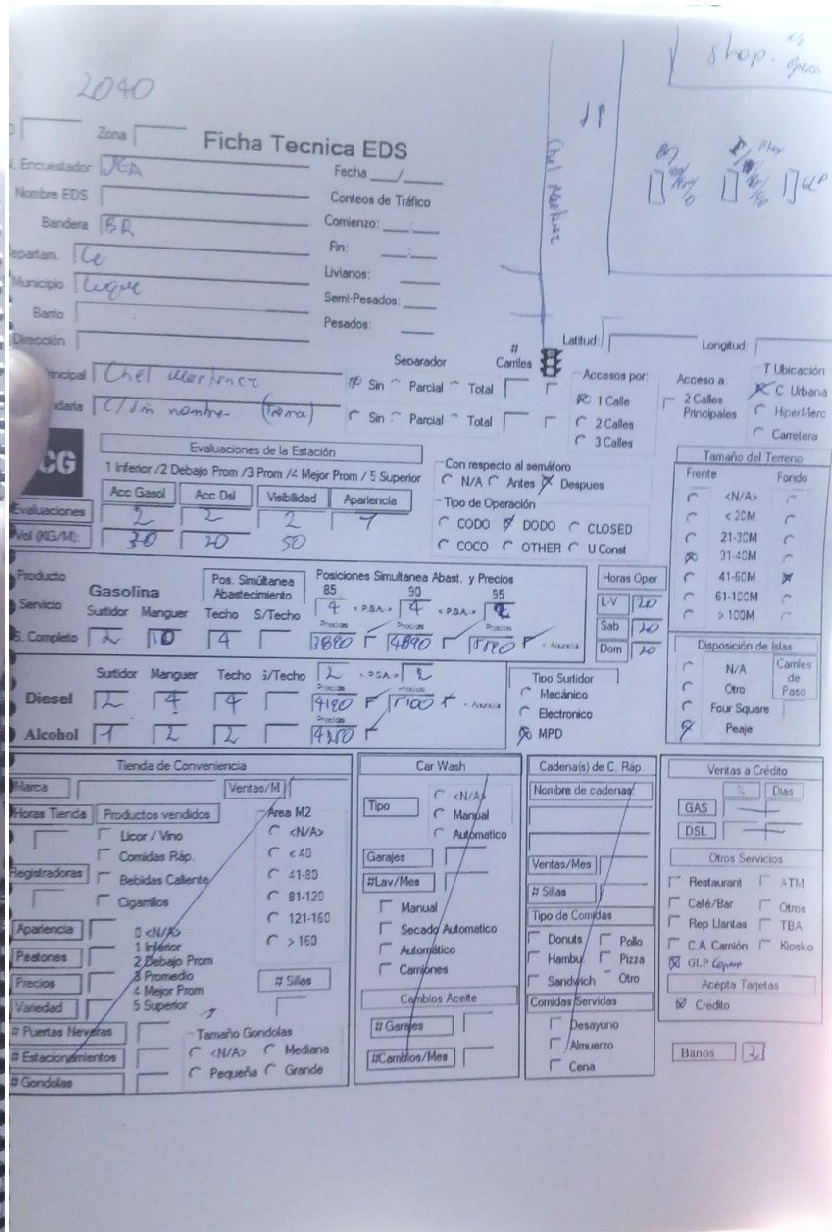 2040
shop.
Chel Martinez
GLP
Zona
Ficha Tecnica EDS
Encuestador
Fecha
Nombre EDS
Conteos de Tráfico
Bandera BR
Comienzo:
Departam. Ce
Fin:
Municipio Luque
Livianos:
Semi-Pesados:
Barrio
Pesados:
Dirección
Latitud:
Longitud:
Separador
# Carriles
Chel Martinez
Sin Parcial Total
C/ sin nombre
Sin Parcial Total
Accesos por:
1 Calle
2 Calles
3 Calles
Acceso a
2 Calles Principales
T Ubicación
C. Urbana
HiperMerc
Carretera
CG
Evaluaciones de la Estación
1 Inferior /2 Debajo Prom /3 Prom /4 Mejor Prom / 5 Superior
Acc Gasol Acc Dsl Visibilidad Apariencia
Evaluaciones 2 2 2
Vol (KG/M): 30 20 50
Con respecto al semáforo
N/A Antes Despues
Tipo de Operación
CODO DODO CLOSED
COCO OTHER U Const
Tamaño del Terreno
Frente Fondo
<N/A>
< 20M
21-30M
31-40M
41-60M
61-100M
> 100M
Producto
Servicio
Gasolina
Pos. Simúltanea Abastecimiento
Posiciones Simultanea Abast. y Precios
85 90 95
4 < PSA > 4 < PSA >
Surtidor Manguer Techo S/Techo
Precios Precios Precios
S. Completo 2 10 4 3890 4890
Horas Oper
L-V 20
Sab 20
Dom 20
Surtidor Manguer Techo S/Techo 2 < PSA > 2
Diesel 2 4 4 4190
Precios
Alcohol 1 2 2
Tipo Surtidor
Mecánico
Electronico
MPD
Disposición de Islas
N/A
Otro
Four Square
Peaje
Carriles de Paso
Tienda de Conveniencia
Marca
Ventas/M
Horas Tienda
Productos vendidos
Licor / Vino
Comidas Ráp.
Bebidas Caliente
Cigarrillos
Registradoras
Area M2
<N/A>
< 40
41-80
81-120
121-160
> 160
Apariencia
Peatones
Precios
Variedad
0 <N/A>
1 Inferior
2 Debajo Prom
3 Promedio
4 Mejor Prom
5 Superior
# Sillas
# Puertas Neveras
# Estacionamientos
# Gondolas
Tamaño Gondolas
<N/A> Mediana
Pequeña Grande
Car Wash
Tipo
<N/A>
Manual
Automatico
Garajes
#Lav/Mes
Manual
Secado Automatico
Automático
Camiones
Cambios Aceite
# Garajes
#Cambios/Mes
Cadena(s) de C. Ráp
Nombre de cadenas:
Ventas/Mes
# Sillas
Tipo de Comidas
Donuts Pollo
Hambu. Pizza
Sandwich Otro
Comidas Servidas
Desayuno
Almuerzo
Cena
Ventas a Crédito
% Dias
GAS
DSL
Otros Servicios
Restaurant ATM
Café/Bar Otros
Rep Llantas TBA
C.A. Camión Kiosko
GLP
Acepta Tarjetas
Crédito
Banos 2